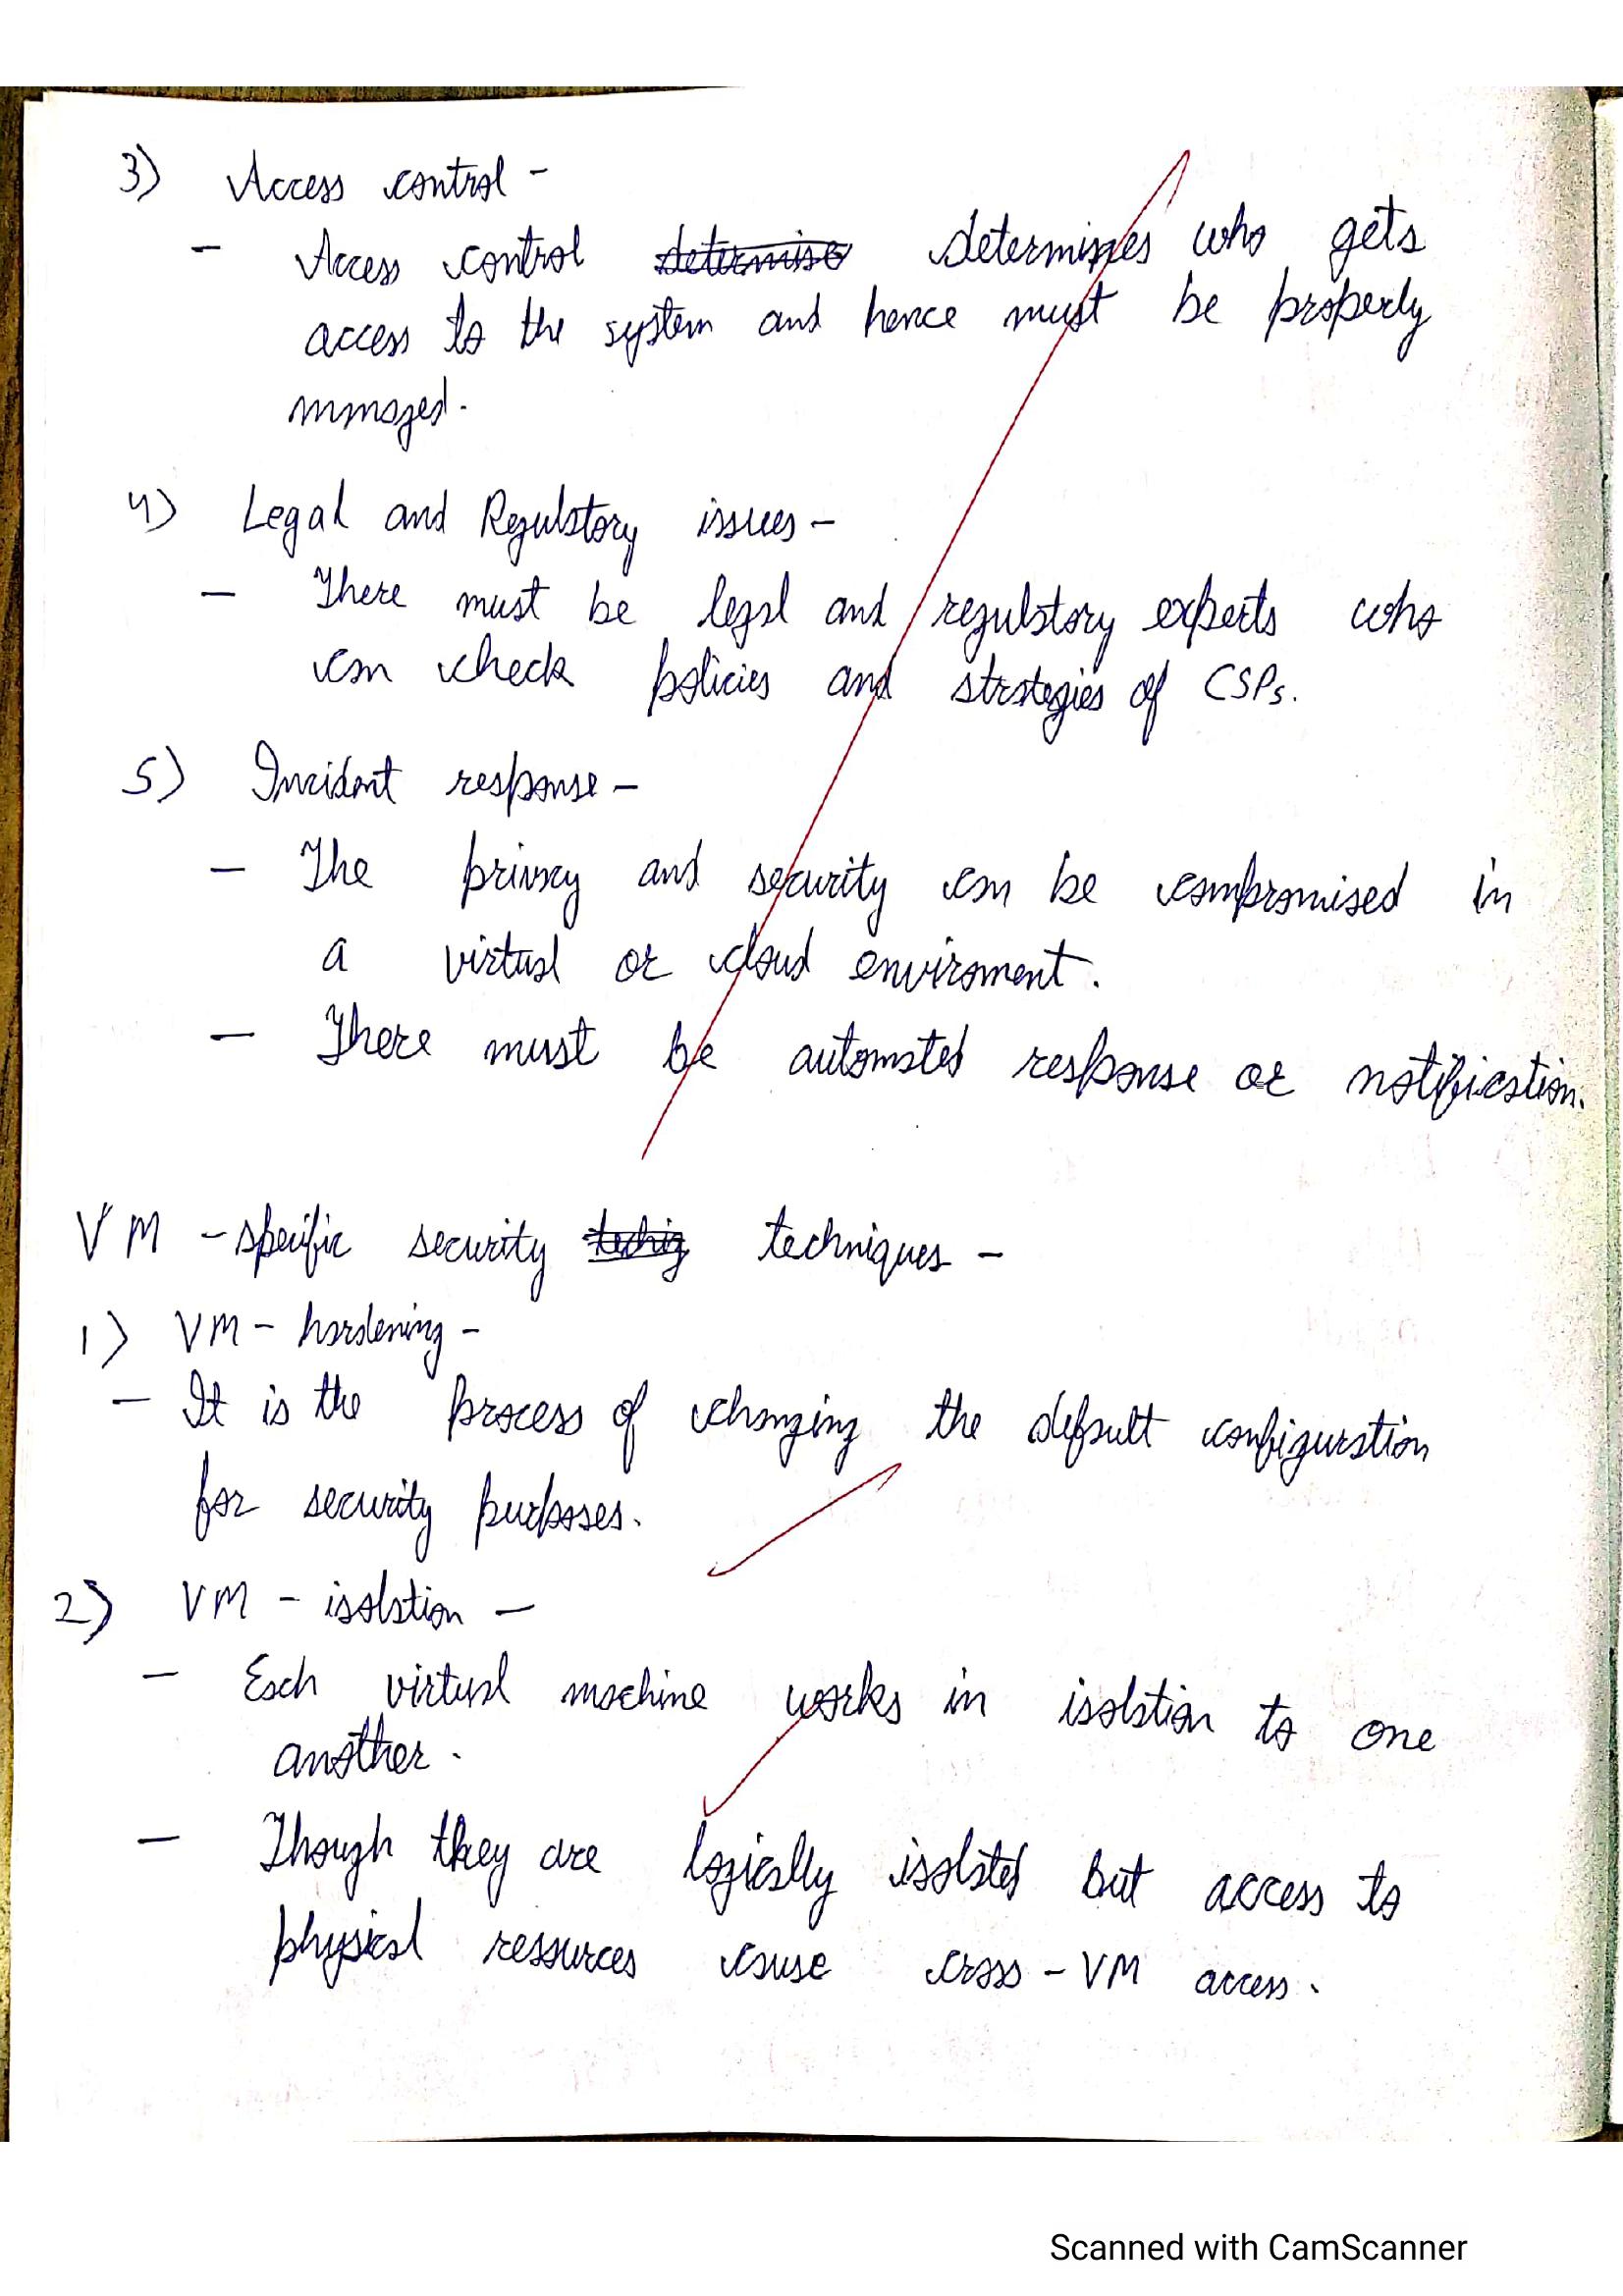 3) Access control -
- Access control determise determines who gets
access to the system and hence must be properly
mmaged.
4) Legal and Regulatory issues -
- There must be legal and regulatory experts who
can check policies and strategies of CSPs.
5) Incident response -
- The privacy and security can be compromised in
a virtual or cloud enviroment.
- There must be automated response or notification.
VM - specific security techiq techniques -
1) VM - hardening -
- It is the process of changing the default configuration
for security purposes.
2) VM - isolation -
- Each virtual machine works in isolation to one
another.
- Though they are logically isolated but access to
physical resources cause cross - VM access.
Scanned with CamScanner